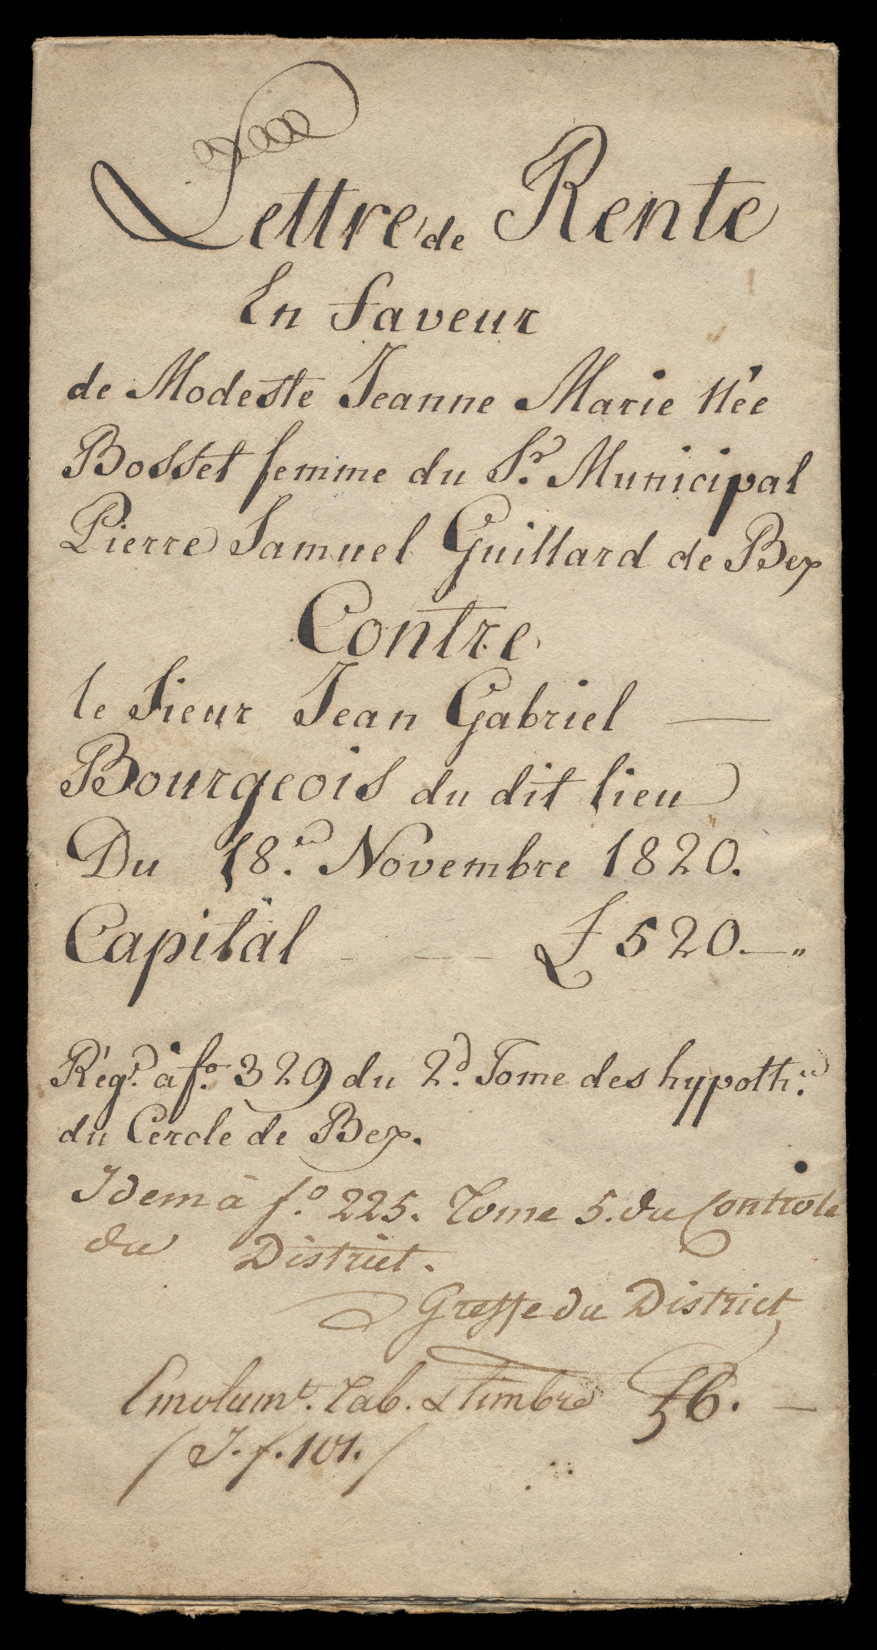 Lettre de Rente
En faveur
de Modeste Jeanne Marie Née
Bosset femme du Sr. Municipal
Pierre Samuel Guillard de Bex
Contre
le Sieur Jean Gabriel —
Bourgeois du dit lieu
Du 18.e Novembre 1820.
Capital - - - £ 520.—„
Régé. à fo. 329 du 2d. Tome des hypoth.
du Cercle de Bex.
Idem à fo. 225. Tome 5. du Controle
du District.
Greffe du District
Emolumt. Tab. & timbre 56. —
/ J. f. 101. /